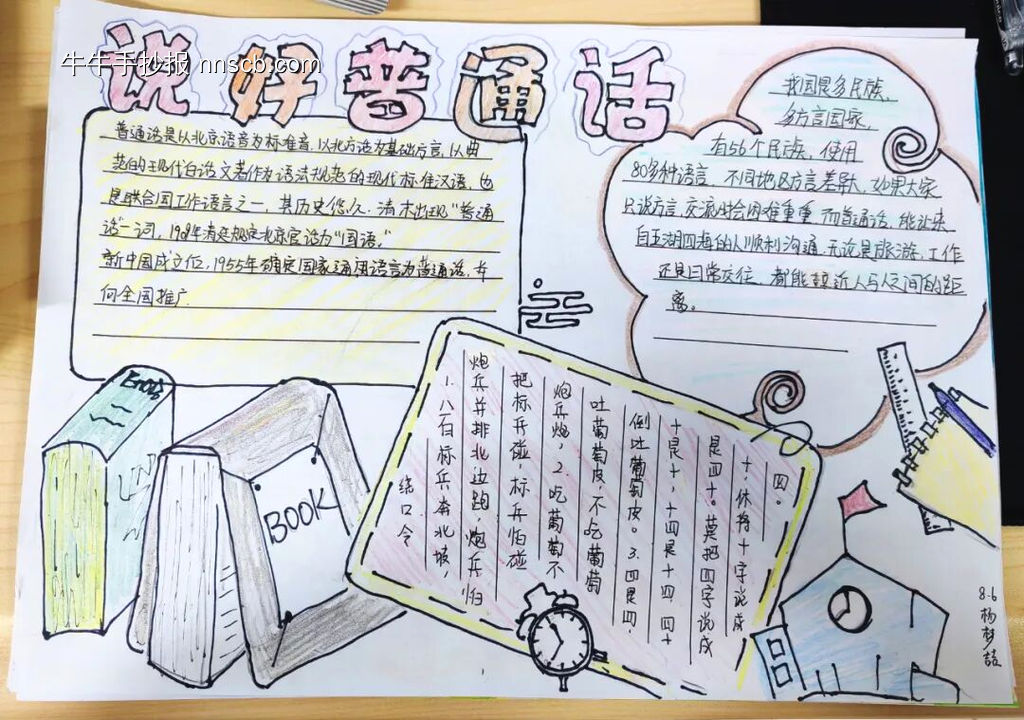 牛牛手抄报 nnscb.com
说好普通话
普通话是以北京语音为标准音,以北方话为基础方言,以典
范的现代白话文著作为语法规范的现代标准汉语,也
是联合国工作语言之一,其历史悠久,清末出现"普通
话"一词,1909年清庭规定北京官话为"国语。"
新中国成立后,1955年确定国家通用语言为普通话,并
向全国推广
我国是多民族、
多方言国家,
有56个民族,使用
80多种语言,不同地区方言差异大,如果大家
只说方言,交流时会困难重重,而普通话,能让来
自五湖四海的人顺利沟通,无论是旅游、工作
还是日常交往,都能拉近人与人之间的距
离。
绕口令
1.八百标兵奔北坡,
炮兵并排北边跑,炮兵怕
把标兵碰,标兵怕碰
炮兵炮,2.吃葡萄不
吐葡萄皮,不吃葡萄
倒吐葡萄皮。3.四是四,
十是十,十四是十四,四十
是四十。莫把四字说成
十,休将十字说成
四。
Book
BOOK
8.6